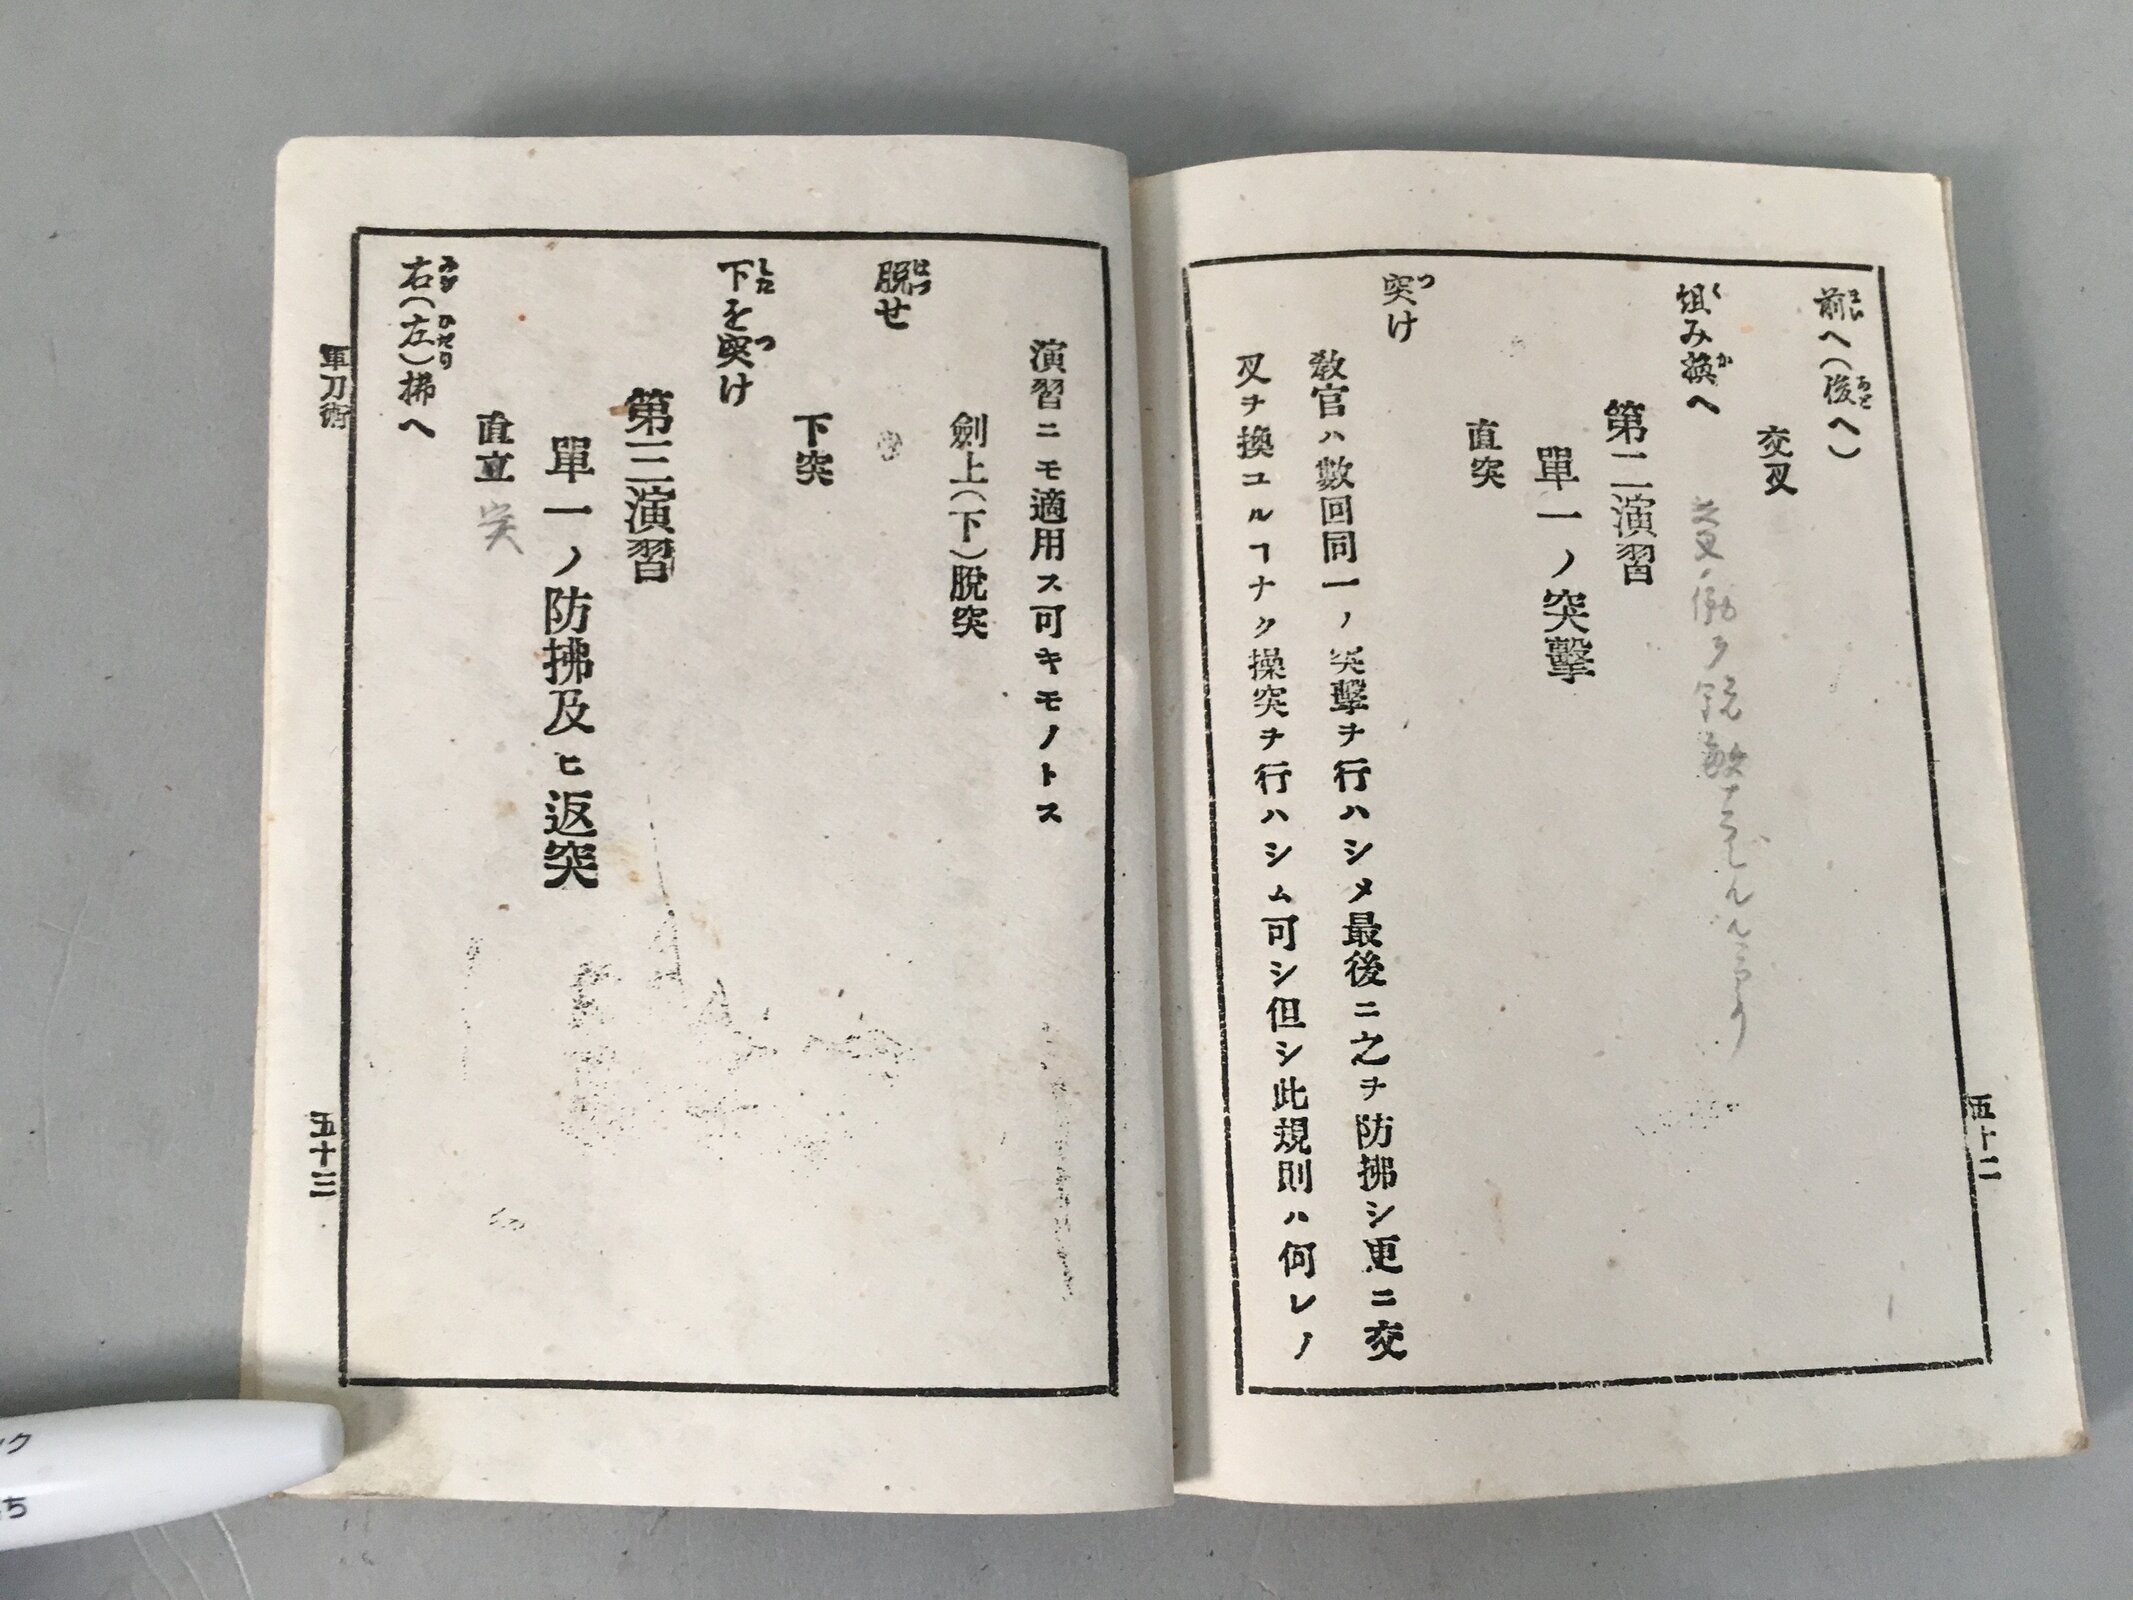 前へ(後へ)
交叉
組み換へ
第二演習
單一ノ突擊
直突
突け
敎官ハ數回同一ノ突擊ヲ行ハシメ最後ニ之ヲ防拂シ更ニ交
叉ヲ換ユルヿナク操突ヲ行ハシム可シ但シ此規則ハ何レノ
五十二
演習ニモ適用ス可キモノトス
劍上(下)脫突
脫せ
下突
下を突け
第三演習
單一ノ防拂及ヒ返突
直立 突
右(左)拂へ
軍刀術
五十三